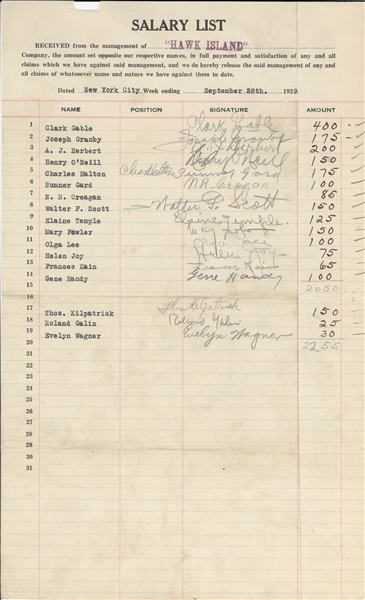 SALARY LIST
RECEIVED from the management of "HAWK ISLAND"
Company, the amount set opposite our respective names, in full payment and satisfaction of any and all
claims which we have against said management, and we do hereby release the said management of any and
all claims of whatsoever name and nature we have against them to date.
Dated New York City Week ending September 28th. 1929
NAME POSITION SIGNATURE AMOUNT
1 Clark Gable Clark Gable 400
2 Joseph Granby Joseph Granby 175
3 A. J. Herbert A. J. Herbert 200
4 Henry O'Neill Henry O'Neill 150
5 Charles Halton Charles Halton 175
6 Sumner Gard Sumner Gard 100
7 N. R. Creagan N.R. Creagan 85
8 Walter F. Scott Walter F. Scott 150
9 Elaine Temple Elaine Temple 125
10 Mary Fowler Mary 150
11 Olga Lee Olga Lee 100
12 Helen Joy Helen Joy 75
13 Frances Kain Frances Kain 65
14 Gene Handy Gene Handy 100
15 2050
16
17 Thos. Kilpatrick Thos Kilpatrick 150
18 Roland Galin Roland Galin 25
19 Evelyn Wagner Evelyn Wagner 30
20 2255
21
22
23
24
25
26
27
28
29
30
31